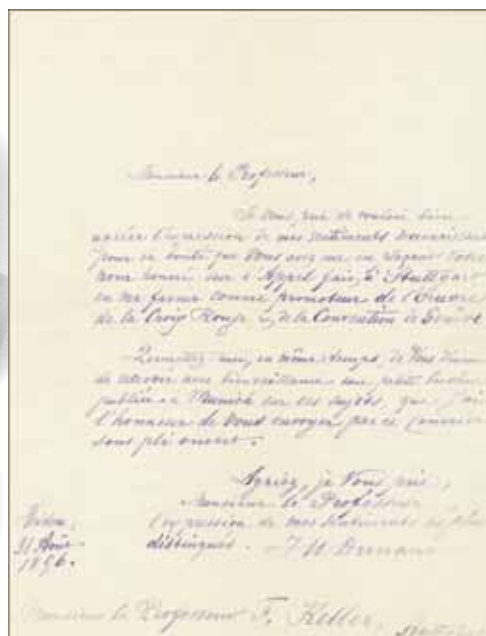 Monsieur le Professeur,
Je Vous prie de vouloir bien
agréer l'expression de mes sentiments
pour la bonté que Vous avez eue en
nom sur l'Appel fait, à Stuttgart
en ma faveur comme promoteur de l'Œuvre
de la Croix Rouge & de la Convention de Genève
Permettez-moi, en même temps, de Vous
de recevoir avec bienveillance une petite
publiée à Munich sur ces sujets, que j'ai
l'honneur de Vous envoyer par ce courrier
sous pli ouvert.
Agréez, je Vous prie,
Monsieur le Professeur
l'expression de mes sentiments les plus
distingués. J H Dunant
31 Août
1896.
Monsieur le Professeur F. Keller,